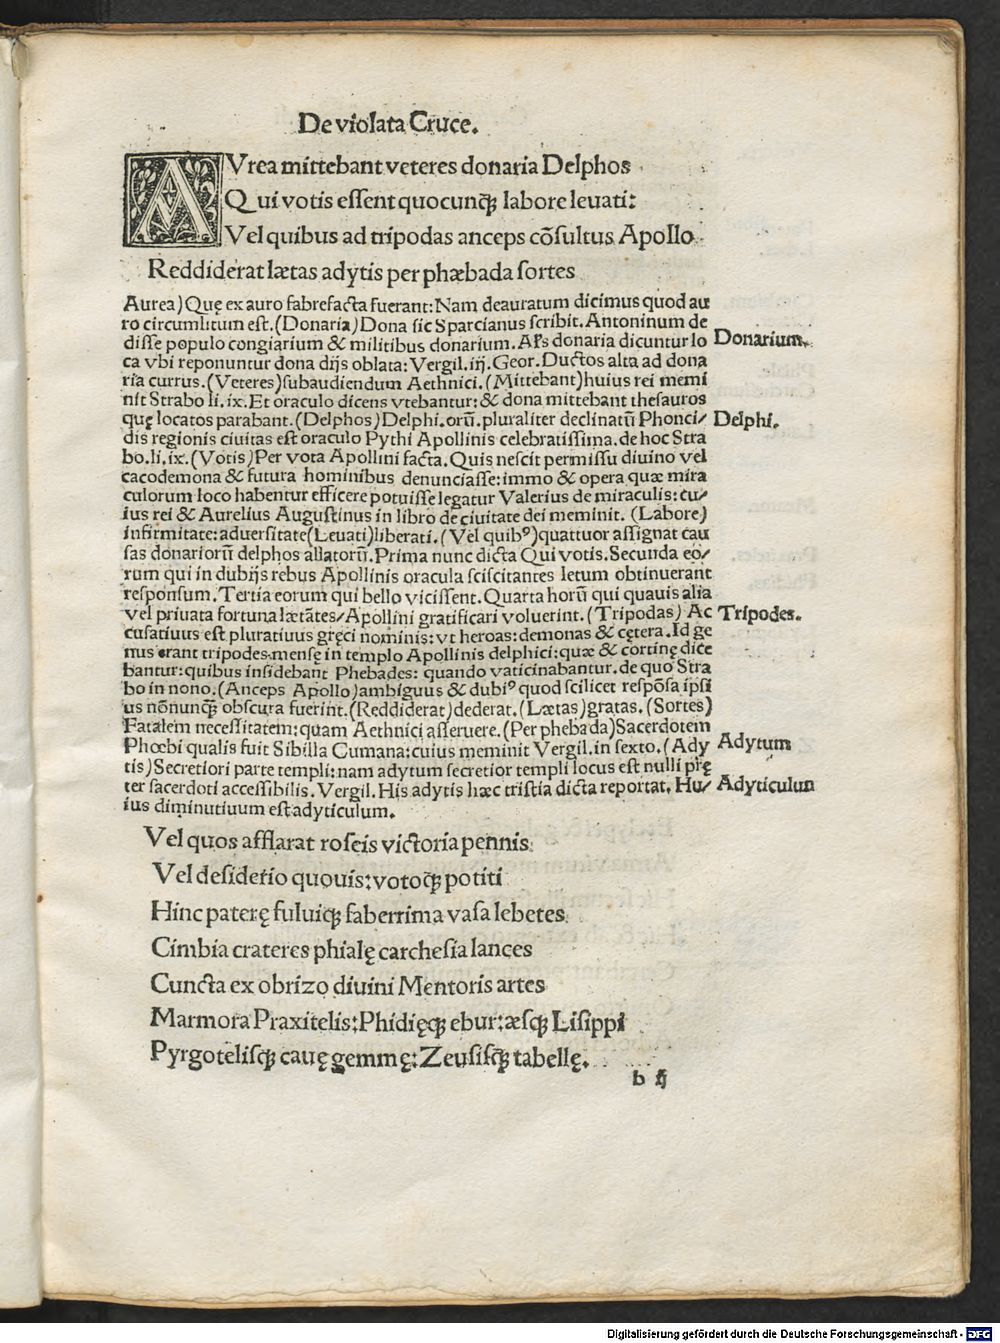 De violata Cruce.
AVrea mittebant veteres donaria Delphos
Qui votis essent quocunqꝫ labore leuati:
Vel quibus ad tripodas anceps cõsultus Apollo
Reddiderat lætas adytis per phæbada sortes
Aurea) Quę ex auro fabrefacta fuerant: Nam deauratum dicimus quod au
ro circumlitum est. (Donaria) Dona sic Sparcianus scribit. Antoninum de
disse populo congiarium & militibus donarium. Als donaria dicuntur lo
ca vbi reponuntur dona dijs oblata: Vergil. iij. Geor. Ductos alta ad dona
ria currus. (Veteres) subaudiendum Aethnici. (Mittebant) huius rei memi
nit Strabo li. ix. Et oraculo dicens vtebantur: & dona mittebant thesauros
quę locatos parabant. (Delphos) Delphi. orũ. pluraliter declinatũ Phonci/
dis regionis ciuitas est oraculo Pythi Apollinis celebratissima. de hoc Stra
bo. li. ix. (Votis) Per vota Apollini facta. Quis nescit permissu diuino vel
cacodemona & futura hominibus denunciasse: immo & opera quæ mira
culorum loco habentur efficere potuisse legatur Valerius de miraculis: cu/
ius rei & Aurelius Augustinus in libro de ciuitate dei meminit. (Labore)
infirmitate: aduersitate (Leuati) liberati. (Vel quibꝰ) quattuor assignat cau
sas donariorũ delphos allatorũ. Prima nunc dicta Qui votis. Secunda eo/
rum qui in dubijs rebus Apollinis oracula sciscitantes letum obtinuerant
responsum. Tertia eorum qui bello vicissent. Quarta horũ qui quauis alia
vel priuata fortuna lætãtes/ Apollini gratificari voluerint. (Tripodas) Ac
cusatiuus est pluratiuus gręci nominis: vt heroas: demonas & cętera. Id ge
nus erant tripodes. mensę in templo Apollinis delphici: quæ & cortinę dice
bantur: quibus insidebant Phebades: quando vaticinabantur. de quo Stra
bo in nono. (Anceps Apollo) ambiguus & dubiꝰ quod scilicet respõsa ipsi
us nõnunqꝫ obscura fuerint. (Reddiderat) dederat. (Lætas) gratas. (Sortes)
Fatalem necessitatem: quam Aethnici asseruere. (Per phebada) Sacerdotem
Phœbi qualis fuit Sibilla Cumana: cuius meminit Vergil. in sexto. (Ady
tis) Secretiori parte templi: nam adytum secretior templi locus est nulli prę
ter sacerdoti accessibilis. Vergil. His adytis hæc tristia dicta reportat. Hu/
ius diminutiuum est adyticulum.
Donarium.
Delphi.
Tripodes.
Adytum
Adyticulun
Vel quos afflarat roseis victoria pennis
Vel desiderio quouis: votoqꝫ potiti
Hinc paterę fuluiqꝫ faberrima vasa lebetes
Cimbia crateres phialę carchesia lances
Cuncta ex obrizo diuini Mentoris artes
Marmora Praxitelis: Phidięqꝫ ebur: æsqꝫ Lisippi
Pyrgotelisqꝫ cauę gemmę: Zeusisqꝫ tabellę.
b ij
Digitalisierung gefördert durch die Deutsche Forschungsgemeinschaft - DFG